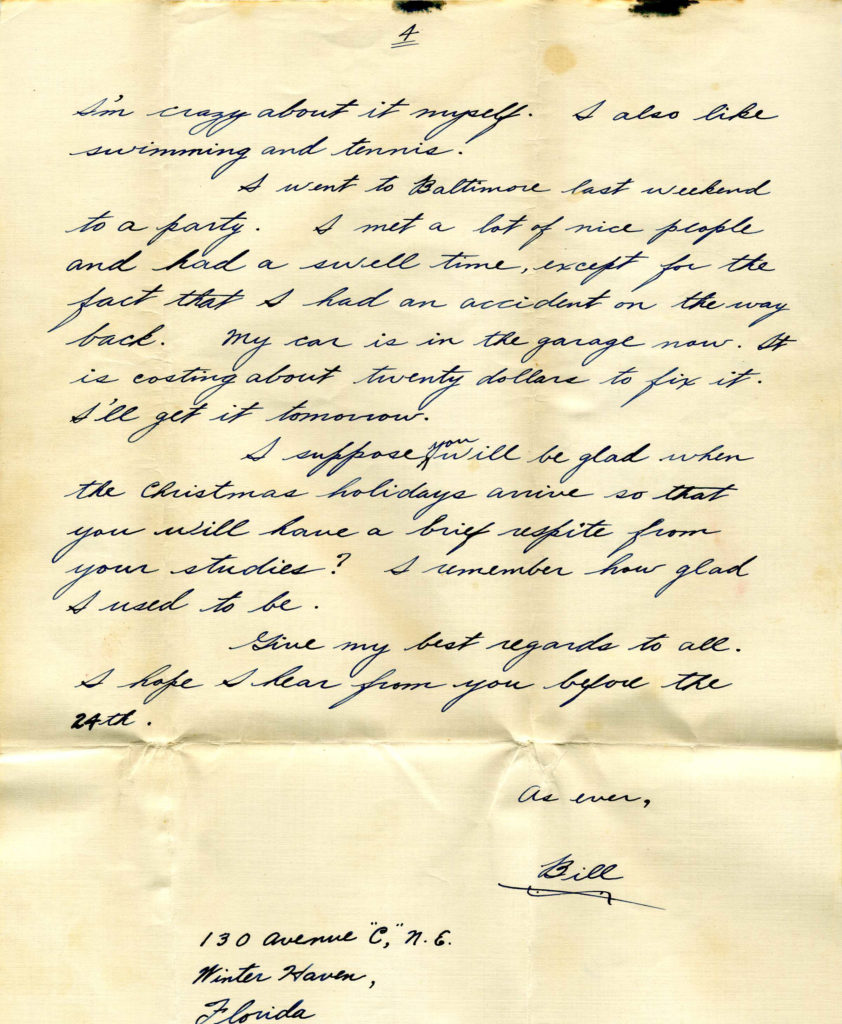 4
I'm crazy about it myself. I also like
swimming and tennis.
I went to Baltimore last weekend
to a party. I met a lot of nice people
and had a swell time, except for the
fact that I had an accident on the way
back. My car is in the garage now. It
is costing about twenty dollars to fix it.
I'll get it tomorrow.
I suppose you will be glad when
the Christmas holidays arrive so that
you will have a brief respite from
your studies? I remember how glad
I used to be.
Give my best regards to all.
I hope I hear from you before the
24th.
As ever,
Bill
130 Avenue "C," N.E.
Winter Haven,
Florida